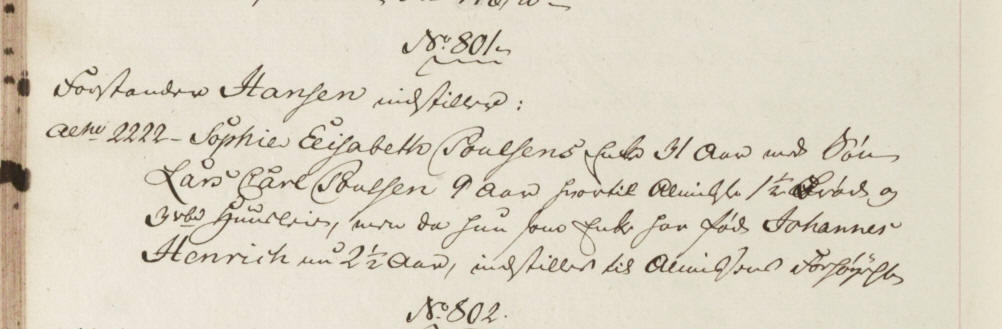 No. 801.
Forstander Hansen indstiller:
AlNo 2222 - Sophie Elisabeth Poulsens Enke 31 Aar med Søn
Lars Carl Poulsen 9 Aar hvortil Almisse 1½ Brød og
3 rbd Huusleie, men da hun som Enke har fød Johannes
Henrich nu 2½ Aar, indstilles til Almissens Forhøyelse
No. 802.